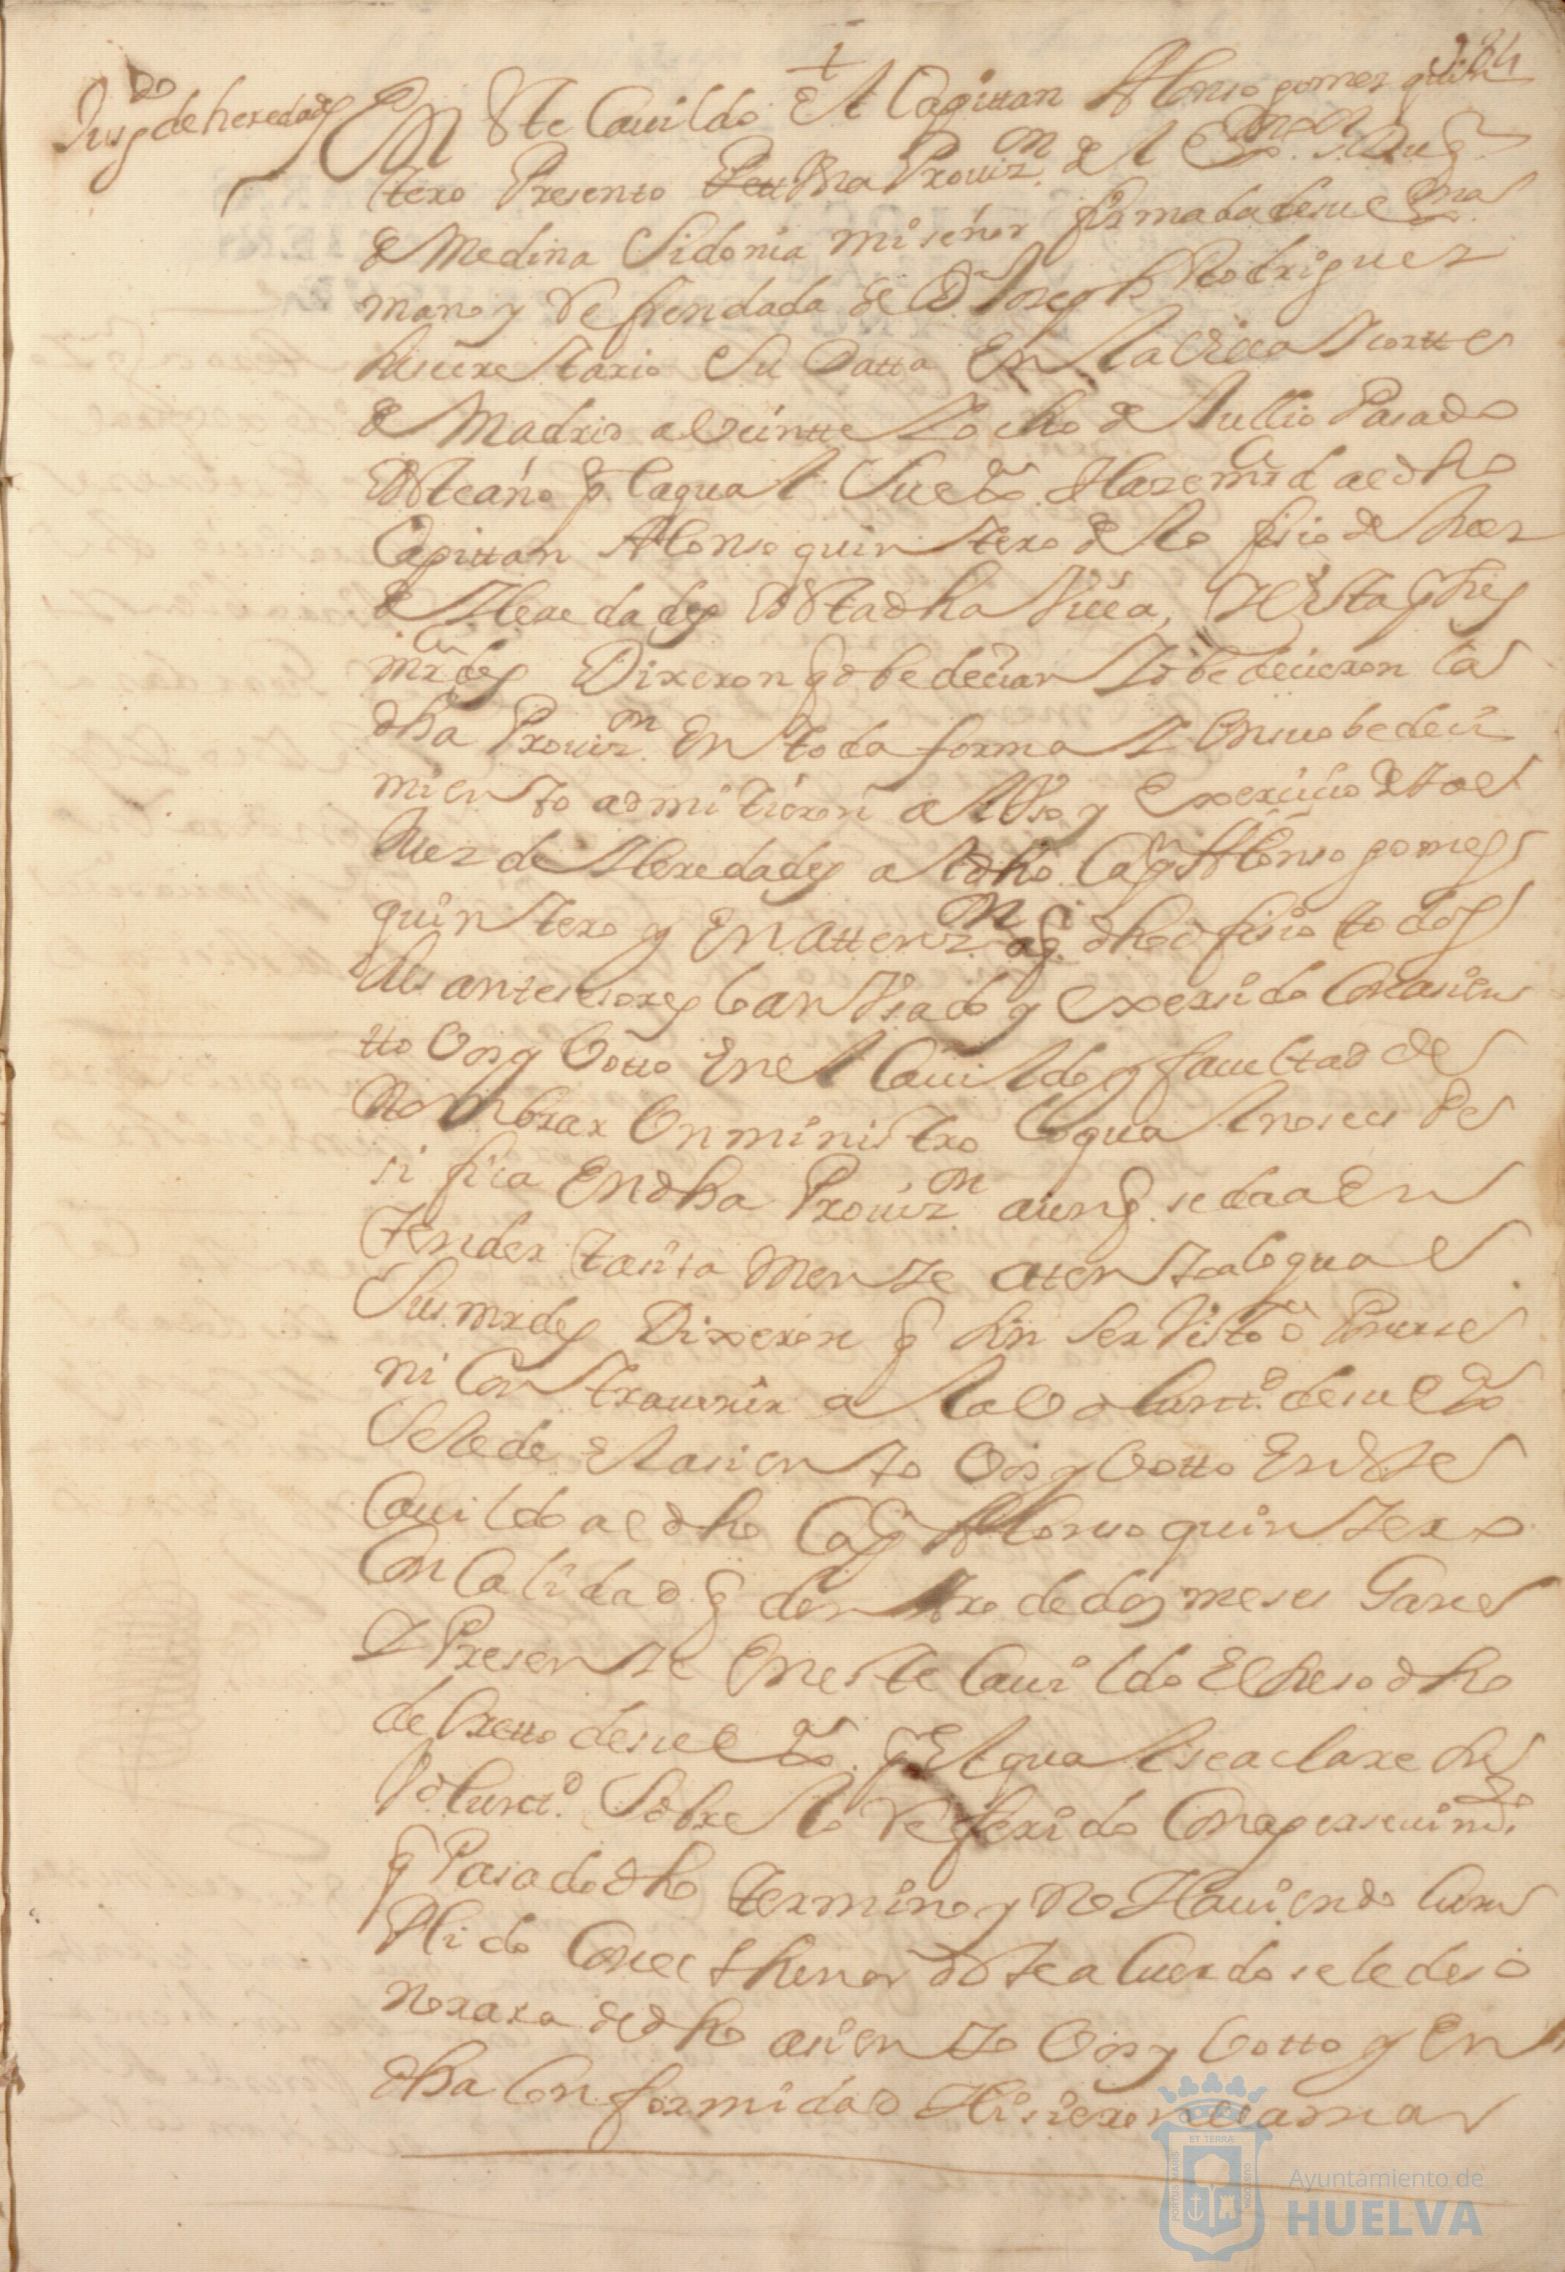 †
Jusgdo de heredades
En Este Cauildo El Capittan Alonso gomez quin
tero Presento Vna Prouizon de el Exmo. Sr. Duq
de Medina Sidonia mi señor firmada de su Exa
mano y Refrendada de D. Joseph Rodriguez
su secrettario Su Datta En la Villa Y cortte
de Madrid a Veintte Y ocho de Jullio Pasado
deste año q. la qual Su exa. Haze mrd al dho
Capittan Alonso quintero de lo fisio de Juez
de Heredades desta dha Villa, Y Vista q hes
mrdes Dixeron q obedecian Y obedecieron la
dha Prouizon En toda forma Y En su obedeci
miento admitieron al Vso y Exercicio de tal
Juez de Heredades al dho Capn Alonso gomes
quintero y En attenzon aq. dho ofisio todos
sus antesesores lo an Vsado y exersido Con asien
tto Vos y Votto En el Cauildo y facultad de
Nombrar Un ministro lo qual no se es pe
sifica En dha Prouizon aunq. se da a en
tender tasita mente atento a lo qual
Sus mrdes Dixeron q sin ser Visto oponerse
ni Contrauenir a la Voluntd de su exa
Se le de el asiento Vos y Votto En este
Cauildo al dho Capn Alonso quintero
Con Calidad q dentro de dos meses Gane
Y Presente En este Cauildo Expreso dho
decretto de su exa. q El qual se aclare su
Voluntd. Sobre lo Referido Con apersiuimto
q Pasado dho termino y no Hauiendo Cum
Plido Con el thenor deste aCuerdo se le des o
norara de dho asiento Vos y Votto y En
dha Conformidad Hisieron llamar
Ayuntamiento de
HUELVA